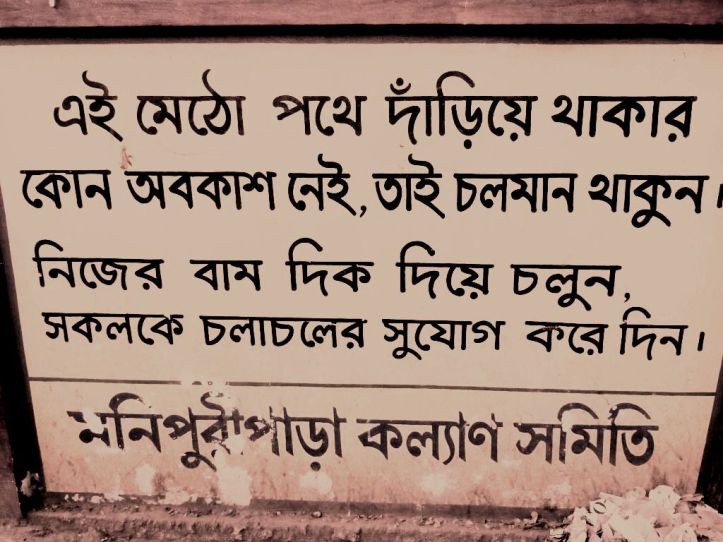 এই মেঠো পথে দাঁড়িয়ে থাকার
কোন অবকাশ নেই, তাই চলমান থাকুন।
নিজের বাম দিক দিয়ে চলুন,
সকলকে চলাচলের সুযোগ করে দিন।
মনিপুরীপাড়া কল্যাণ সমিতি